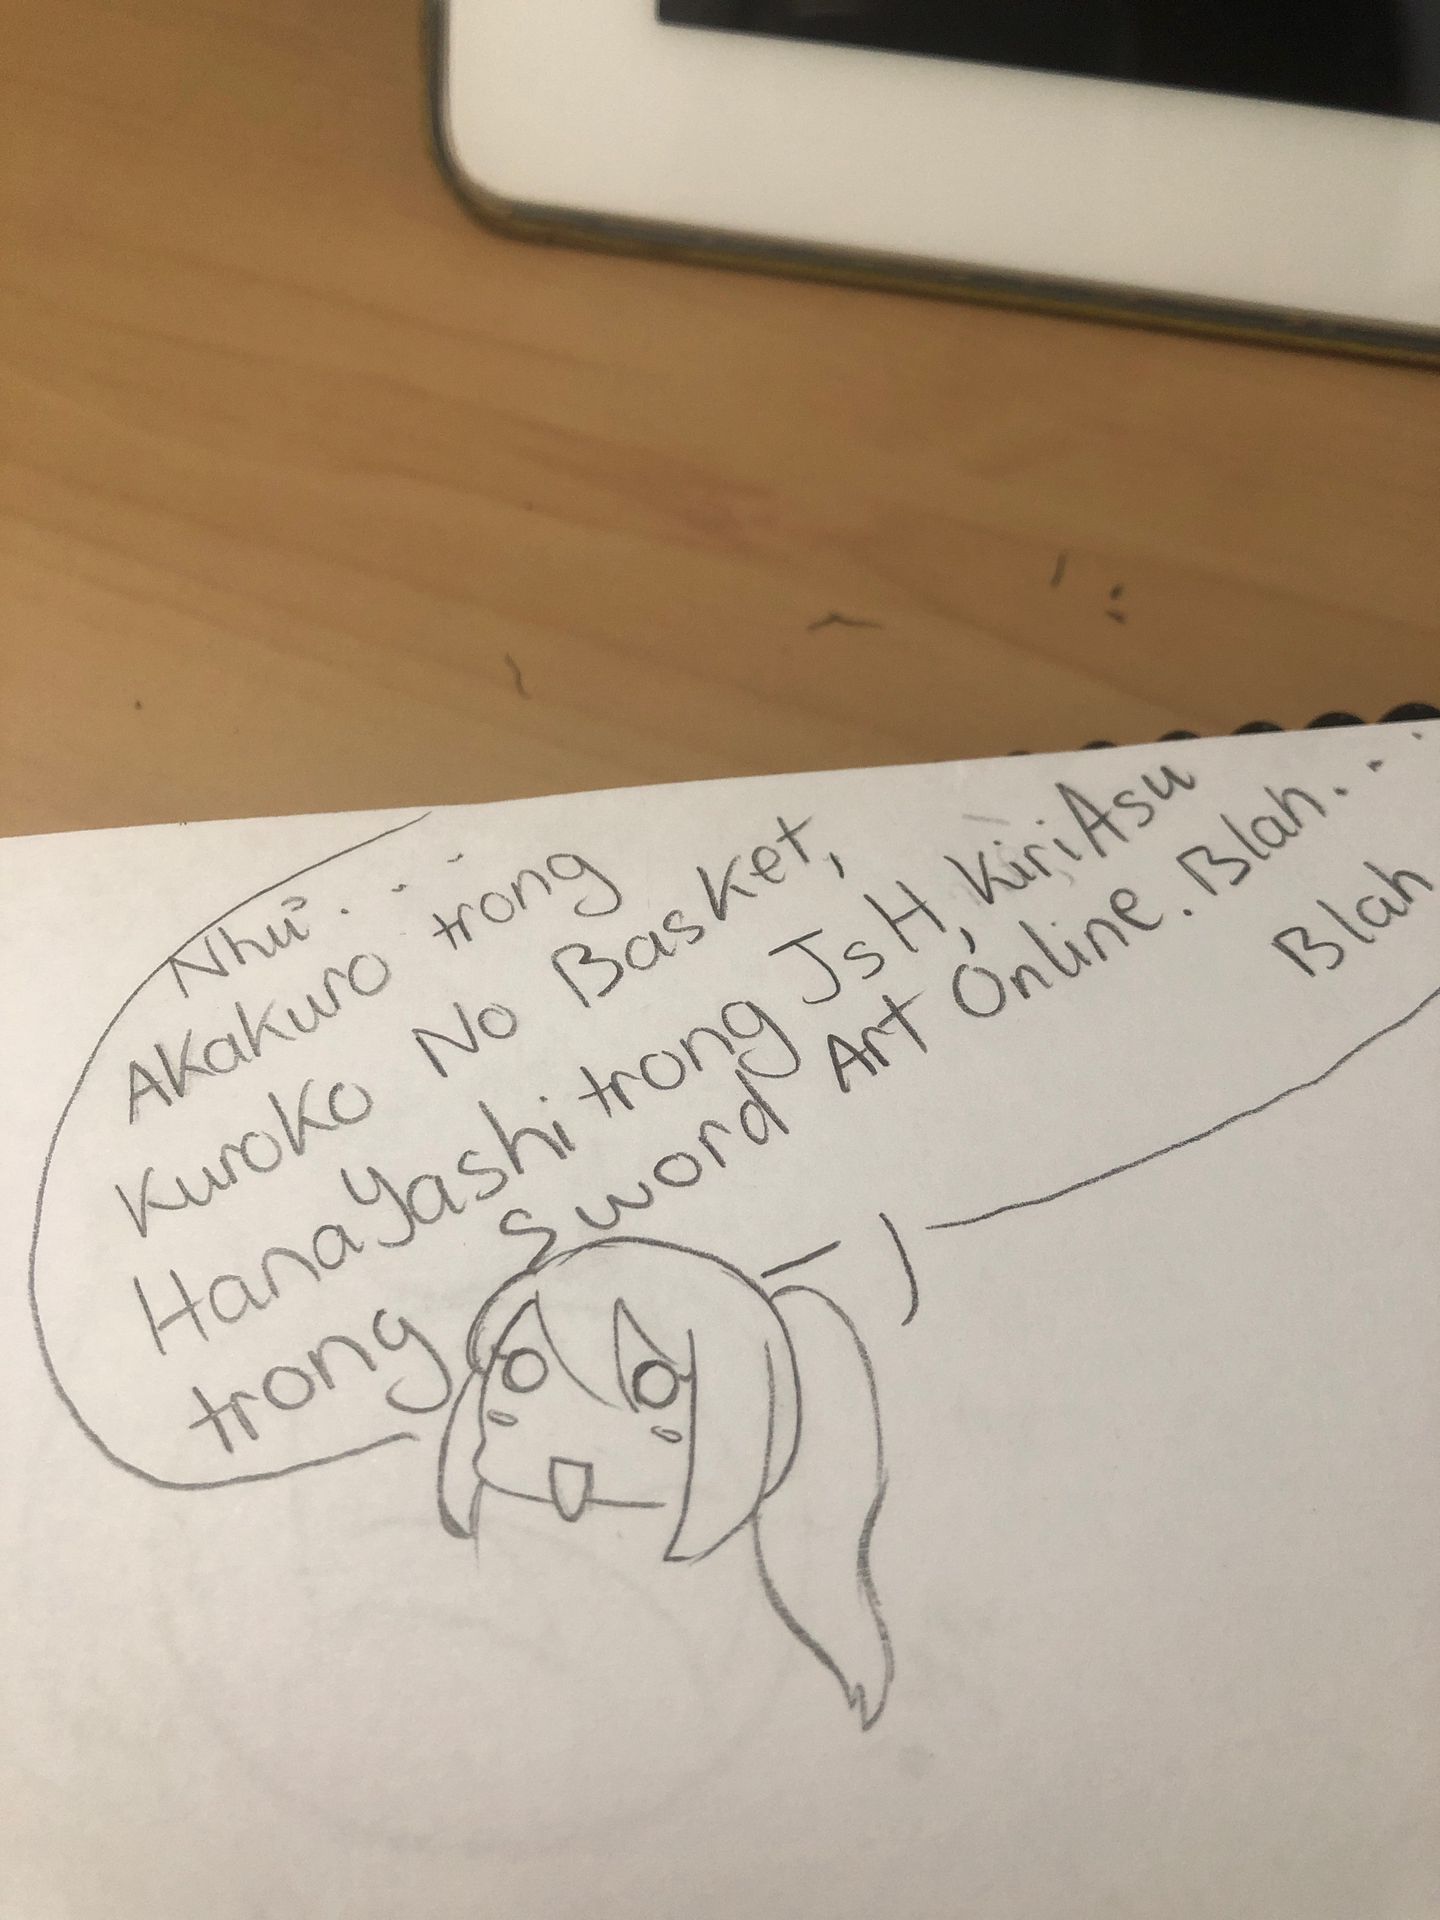 Như...
Akakuro trong
Kuroko No Basket,
HanaYashi trong JsH, KiriAsu
trong Sword Art Online. Blah...
Blah